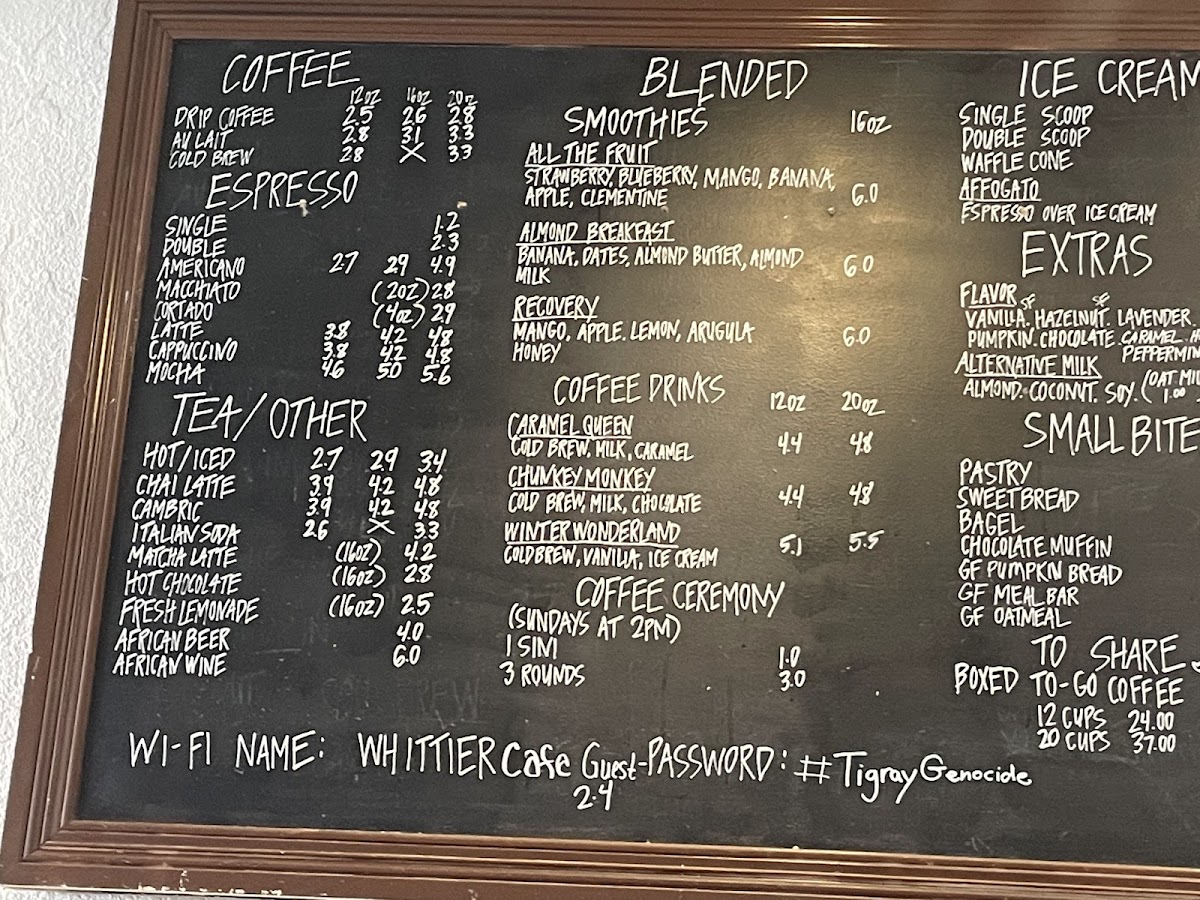 COFFEE
12oz 16oz 20oz
DRIP COFFEE 2.5 2.6 2.8
AU LAIT 2.8 3.1 3.3
COLD BREW 28 X 3.3
ESPRESSO
SINGLE 1.2
DOUBLE 2.3
AMERICANO 2.7 29 4.9
MACCHIATO (2oz) 2.8
CORTADO (4oz) 29
LATTE 3.8 4.2 4.8
CAPPUCCINO 3.8 42 4.8
MOCHA 46 50 5.6
TEA/OTHER
HOT/ICED 2.7 2.9 3.4
CHAI LATTE 3.9 4.2 4.8
CAMBRIC 3.9 42 4.8
ITALIAN SODA 2.6 X 3.3
MATCHA LATTE (16oz) 4.2
HOT CHOCOLATE (16oz) 2.8
FRESH LEMONADE (16oz) 2.5
AFRICAN BEER 4.0
AFRICAN WINE 6.0
BLENDED
SMOOTHIES 16oz
ALL THE FRUIT
STRAWBERRY, BLUEBERRY, MANGO, BANANA,
APPLE, CLEMENTINE 6.0
ALMOND BREAKFAST
BANANA, DATES, ALMOND BUTTER, ALMOND 6.0
MILK
RECOVERY
MANGO, APPLE. LEMON, ARUGULA 6.0
HONEY
COFFEE DRINKS 12oz 20oz
CARAMEL QUEEN
COLD BREW, MILK, CARAMEL 4.4 4.8
CHUNKEY MONKEY
COLD BREW, MILK, CHOCOLATE 4.4 4.8
WINTER WONDERLAND
COLD BREW, VANILLA, ICE CREAM 5.1 5.5
COFFEE CEREMONY
(SUNDAYS AT 2PM)
1 SINI 1.0
3 ROUNDS 3.0
ICE CREAM
SINGLE SCOOP
DOUBLE SCOOP
WAFFLE CONE
AFFOGATO
ESPRESSO OVER ICE CREAM
EXTRAS
FLAVOR SF SF
VANILLA. HAZELNUT. LAVENDER.
PUMPKIN. CHOCOLATE. CARAMEL. H
PEPPERMIN
ALTERNATIVE MILK
ALMOND. COCONUT. SOY. (OAT MIL
1.00
SMALL BITE
PASTRY
SWEET BREAD
BAGEL
CHOCOLATE MUFFIN
GF PUMPKIN BREAD
GF MEAL BAR
GF OATMEAL
TO SHARE
BOXED TO-GO COFFEE
12 CUPS 24.00
20 CUPS 37.00
WI-FI NAME: WHITTIER Cafe Guest-PASSWORD: #TigrayGenocide
2.4